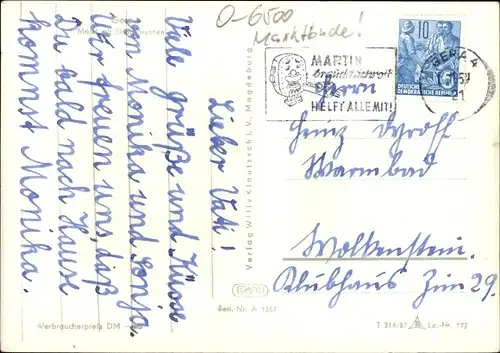 O-6500
Marktbude!
Gera
Markt mit Simsonbrunnen
Lieber Vati!
Viele grüße und Küsse
von Monika und Sonja.
Wir freuen uns, daß
Du bald nach Hause
kommst Monika.
MARTIN
braucht Schrott
HELFT ALLE MIT!
GERA 4
21
10
DEUTSCHE
DEMOKRATISCHE REPUBLIK
Herrn
Heinz Dyroff
Warmbad
Wolkenstein.
Klubhaus Zim 29.
Verlag Willy Klautzsch i. V. Magdeburg
Best.-Nr. A 1257
Verbraucherpreis DM
T 214/57
Lz.-Nr. 112